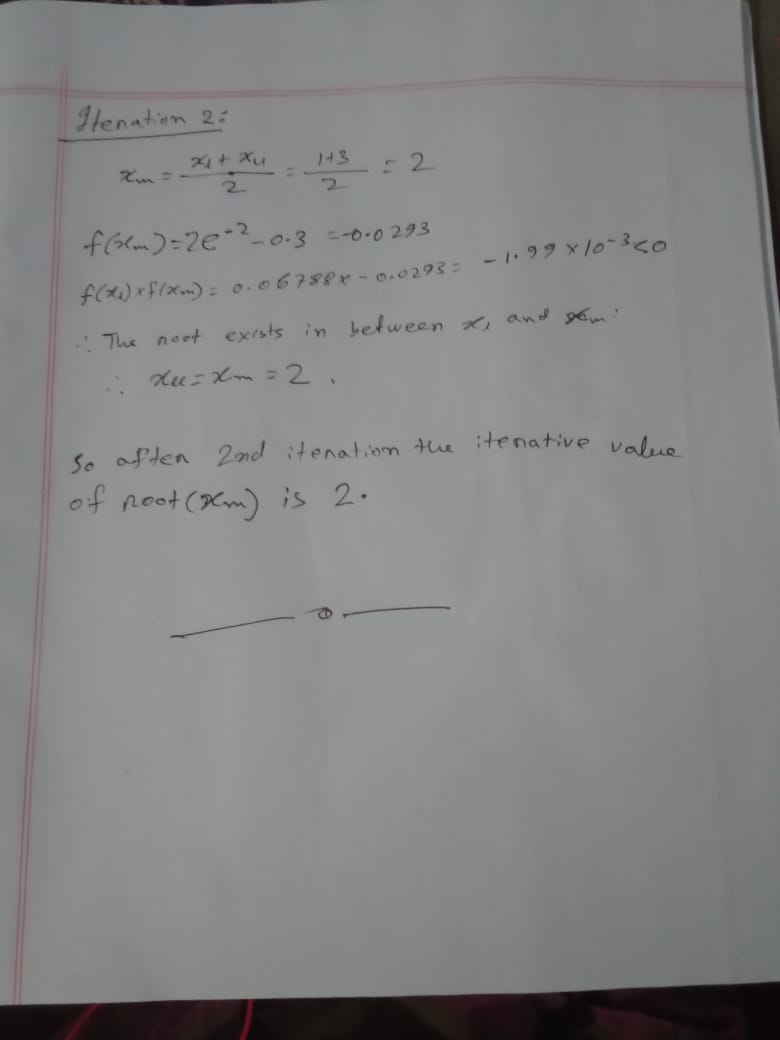 Iteration 2:
xₘ = (x₁ + xᵤ)/2 = (1+3)/2 = 2
f(xₘ) = 2e⁻² - 0.3 = -0.0293
f(x₁) × f(xₘ) = 0.06788 × - 0.0293 = - 1.99 × 10⁻³ < 0
∴ The root exists in between x₁ and xₘ.
∴ xᵤ = xₘ = 2.
So after 2nd iteration the iterative value
of root (xₘ) is 2.